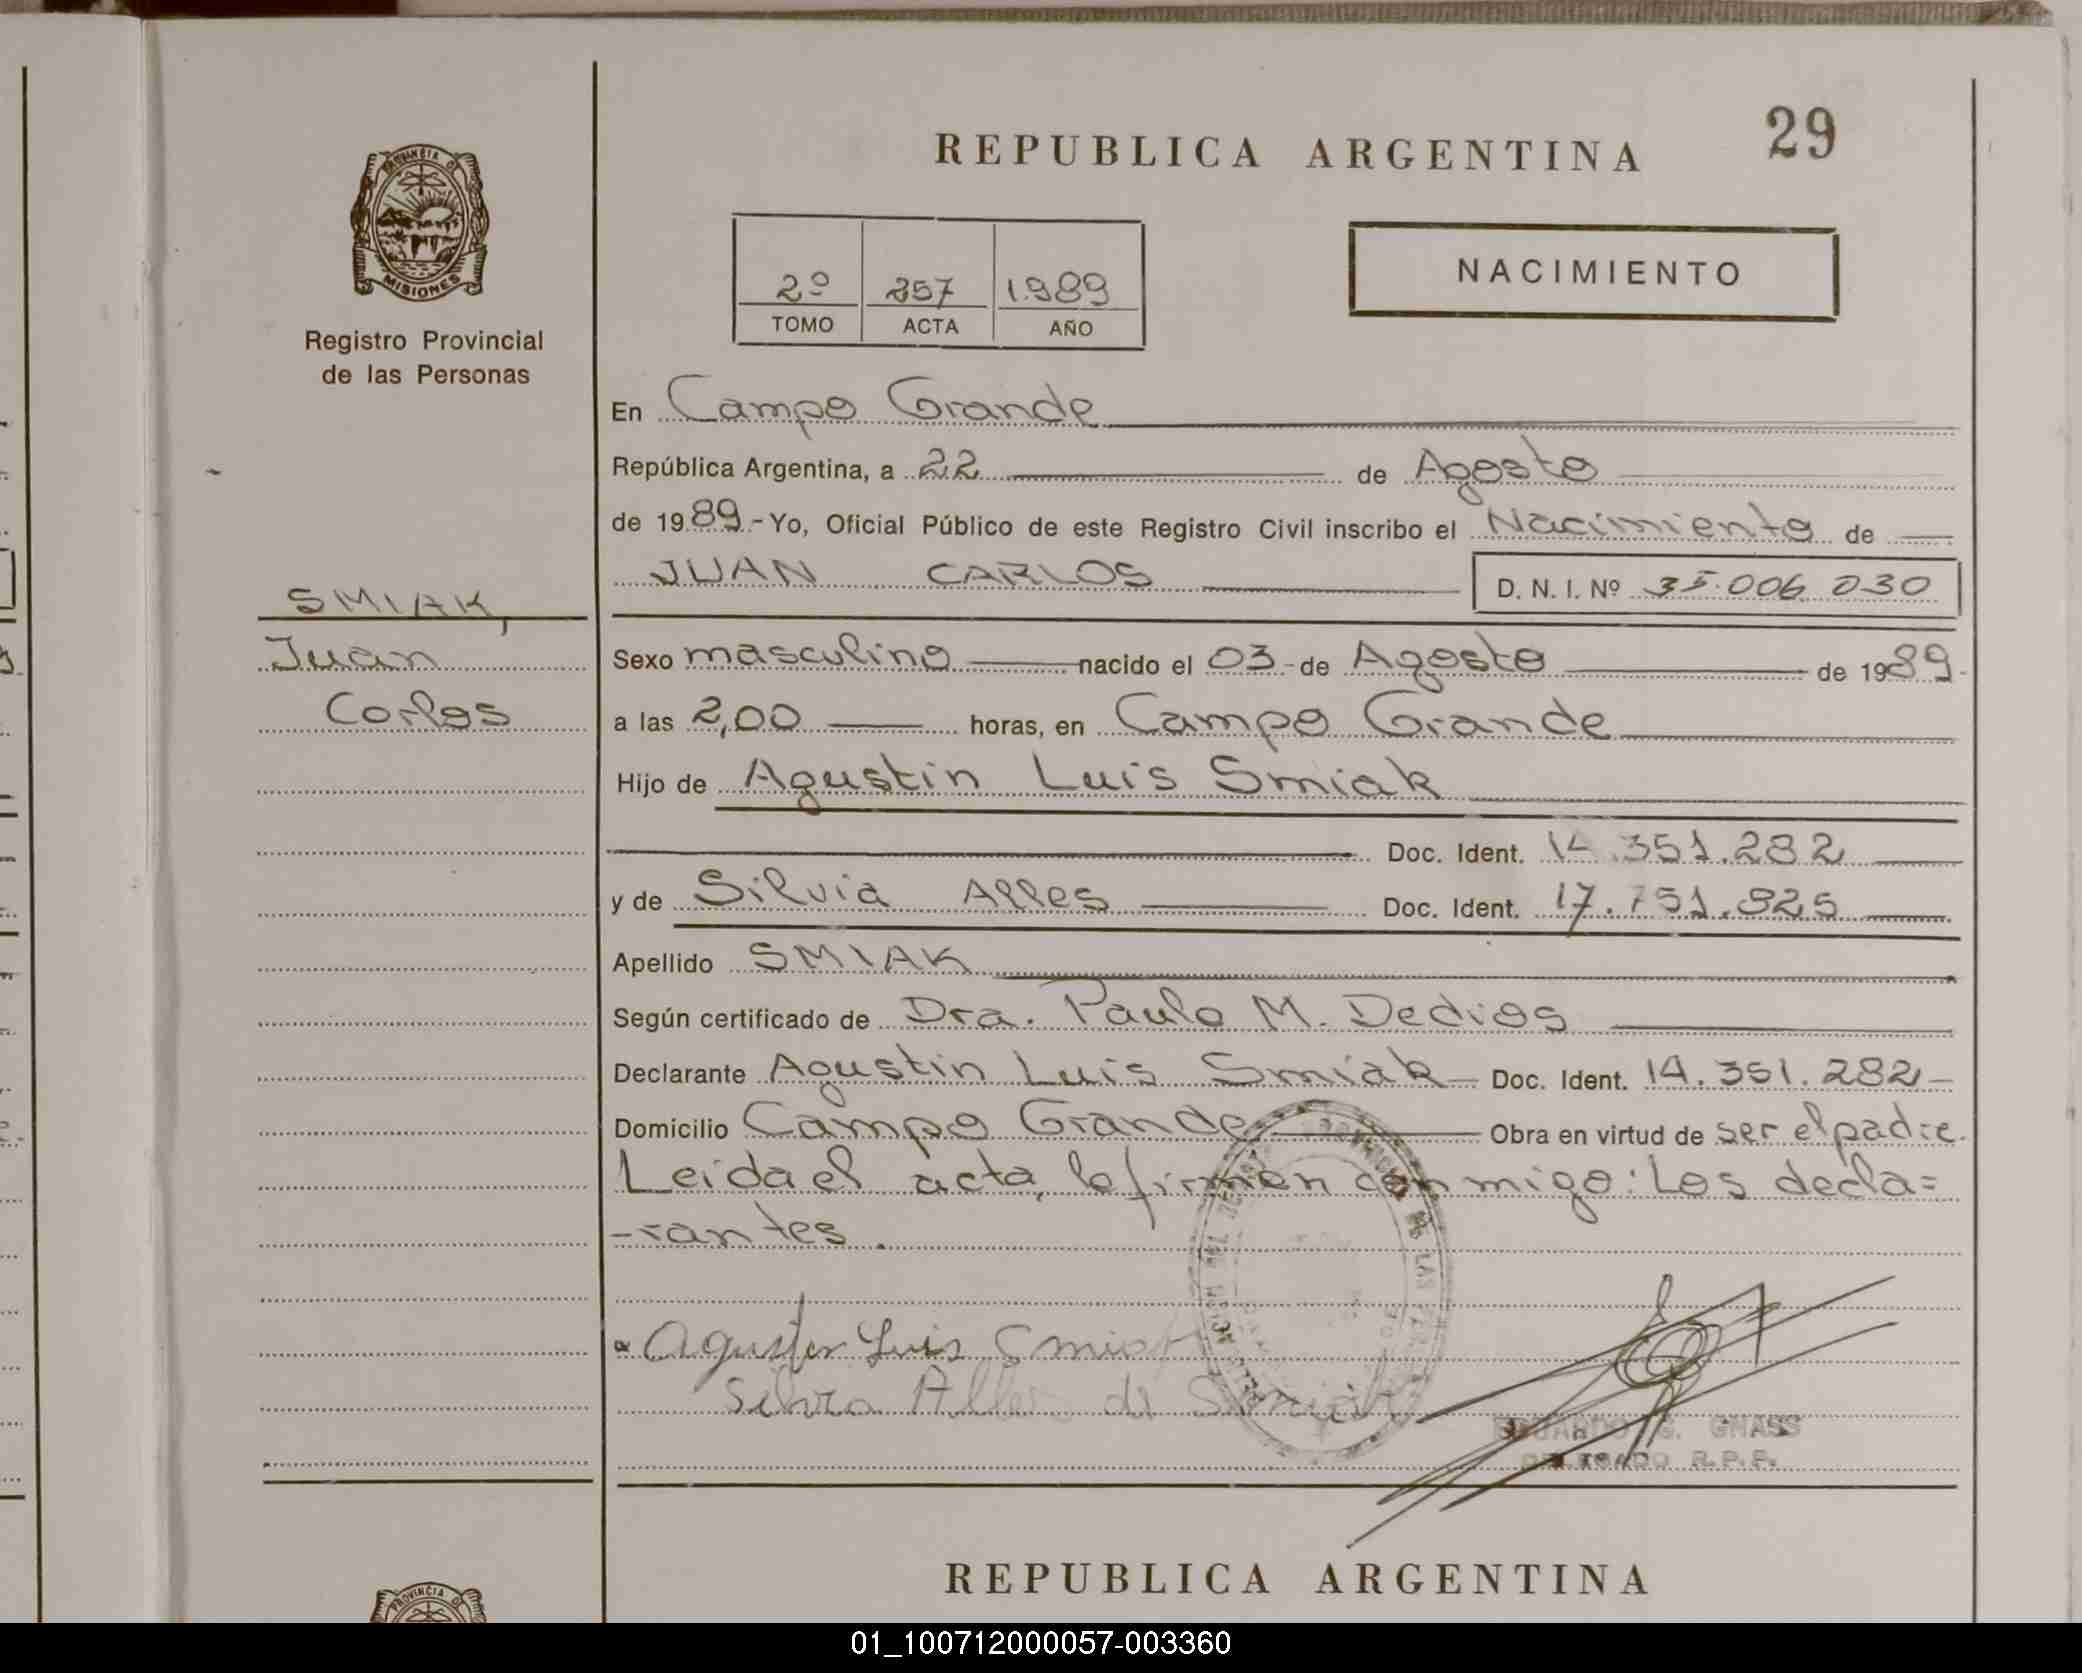 29
REPUBLICA ARGENTINA
PROVINCIA D
MISIONES
Registro Provincial
de las Personas
2º 257 1989
TOMO ACTA AÑO
NACIMIENTO
En Campo Grande
República Argentina, a 22 de Agosto
de 1989.- Yo, Oficial Público de este Registro Civil inscribo el Nacimiento de
JUAN CARLOS D. N. I. Nº 35.006.030
SMIAK,
Juan
Carlos
Sexo masculino nacido el 03-de Agosto de 1989-
a las 2,00 horas, en Campo Grande
Hijo de Agustin Luis Smiak
Doc. Ident. 14.351.282
y de Silvia Alles Doc. Ident. 17.751.925
Apellido SMIAK
Según certificado de Dra. Paula M. Dedios
Declarante Agustin Luis Smiak Doc. Ident. 14.351.282
Domicilio Campo Grande Obra en virtud de ser el padre.
Leida el acta, la firman con migo: Los decla=
-rantes.
Agustin Luis Smiak
Silvia Alles de Smiak
EDUARDO G. GNASS
DELEGADO R.P.P.
REPUBLICA ARGENTINA
PROVINCIA D
01_100712000057-003360